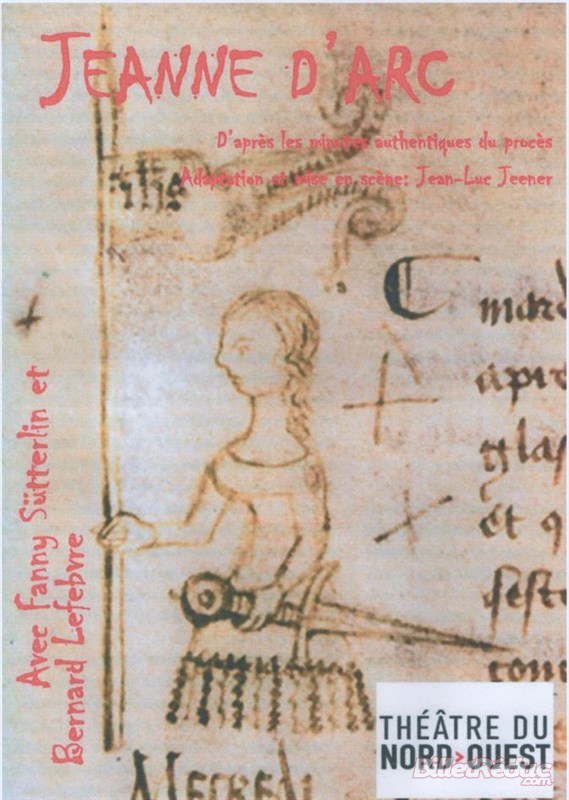 JEANNE D'ARC
D'après les minutes authentiques du procès
Adaptation et mise en scène: Jean-Luc Jeener
Avec Fanny Sütterlin et
Bernard Lefebvre
THÉÂTRE DU
NORD>OUEST
BilletReduc.com